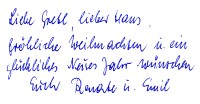 Liebe Gretl lieber Hans,
fröhliche Weihnachten u. ein
glückliches Neues Jahr wünschen
Euch Renate u. Emil